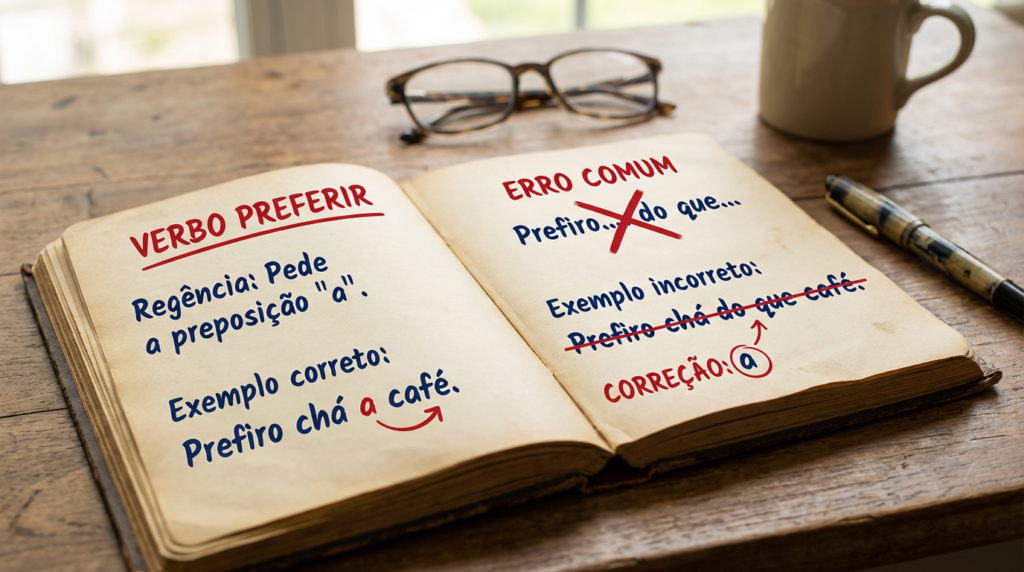 VERBO PREFERIR
Regência: Pede
a preposição "a".
Exemplo correto:
Prefiro chá a café.
ERRO COMUM
Prefiro... do que...
Exemplo incorreto:
Prefiro chá do que café.
CORREÇÃO: a